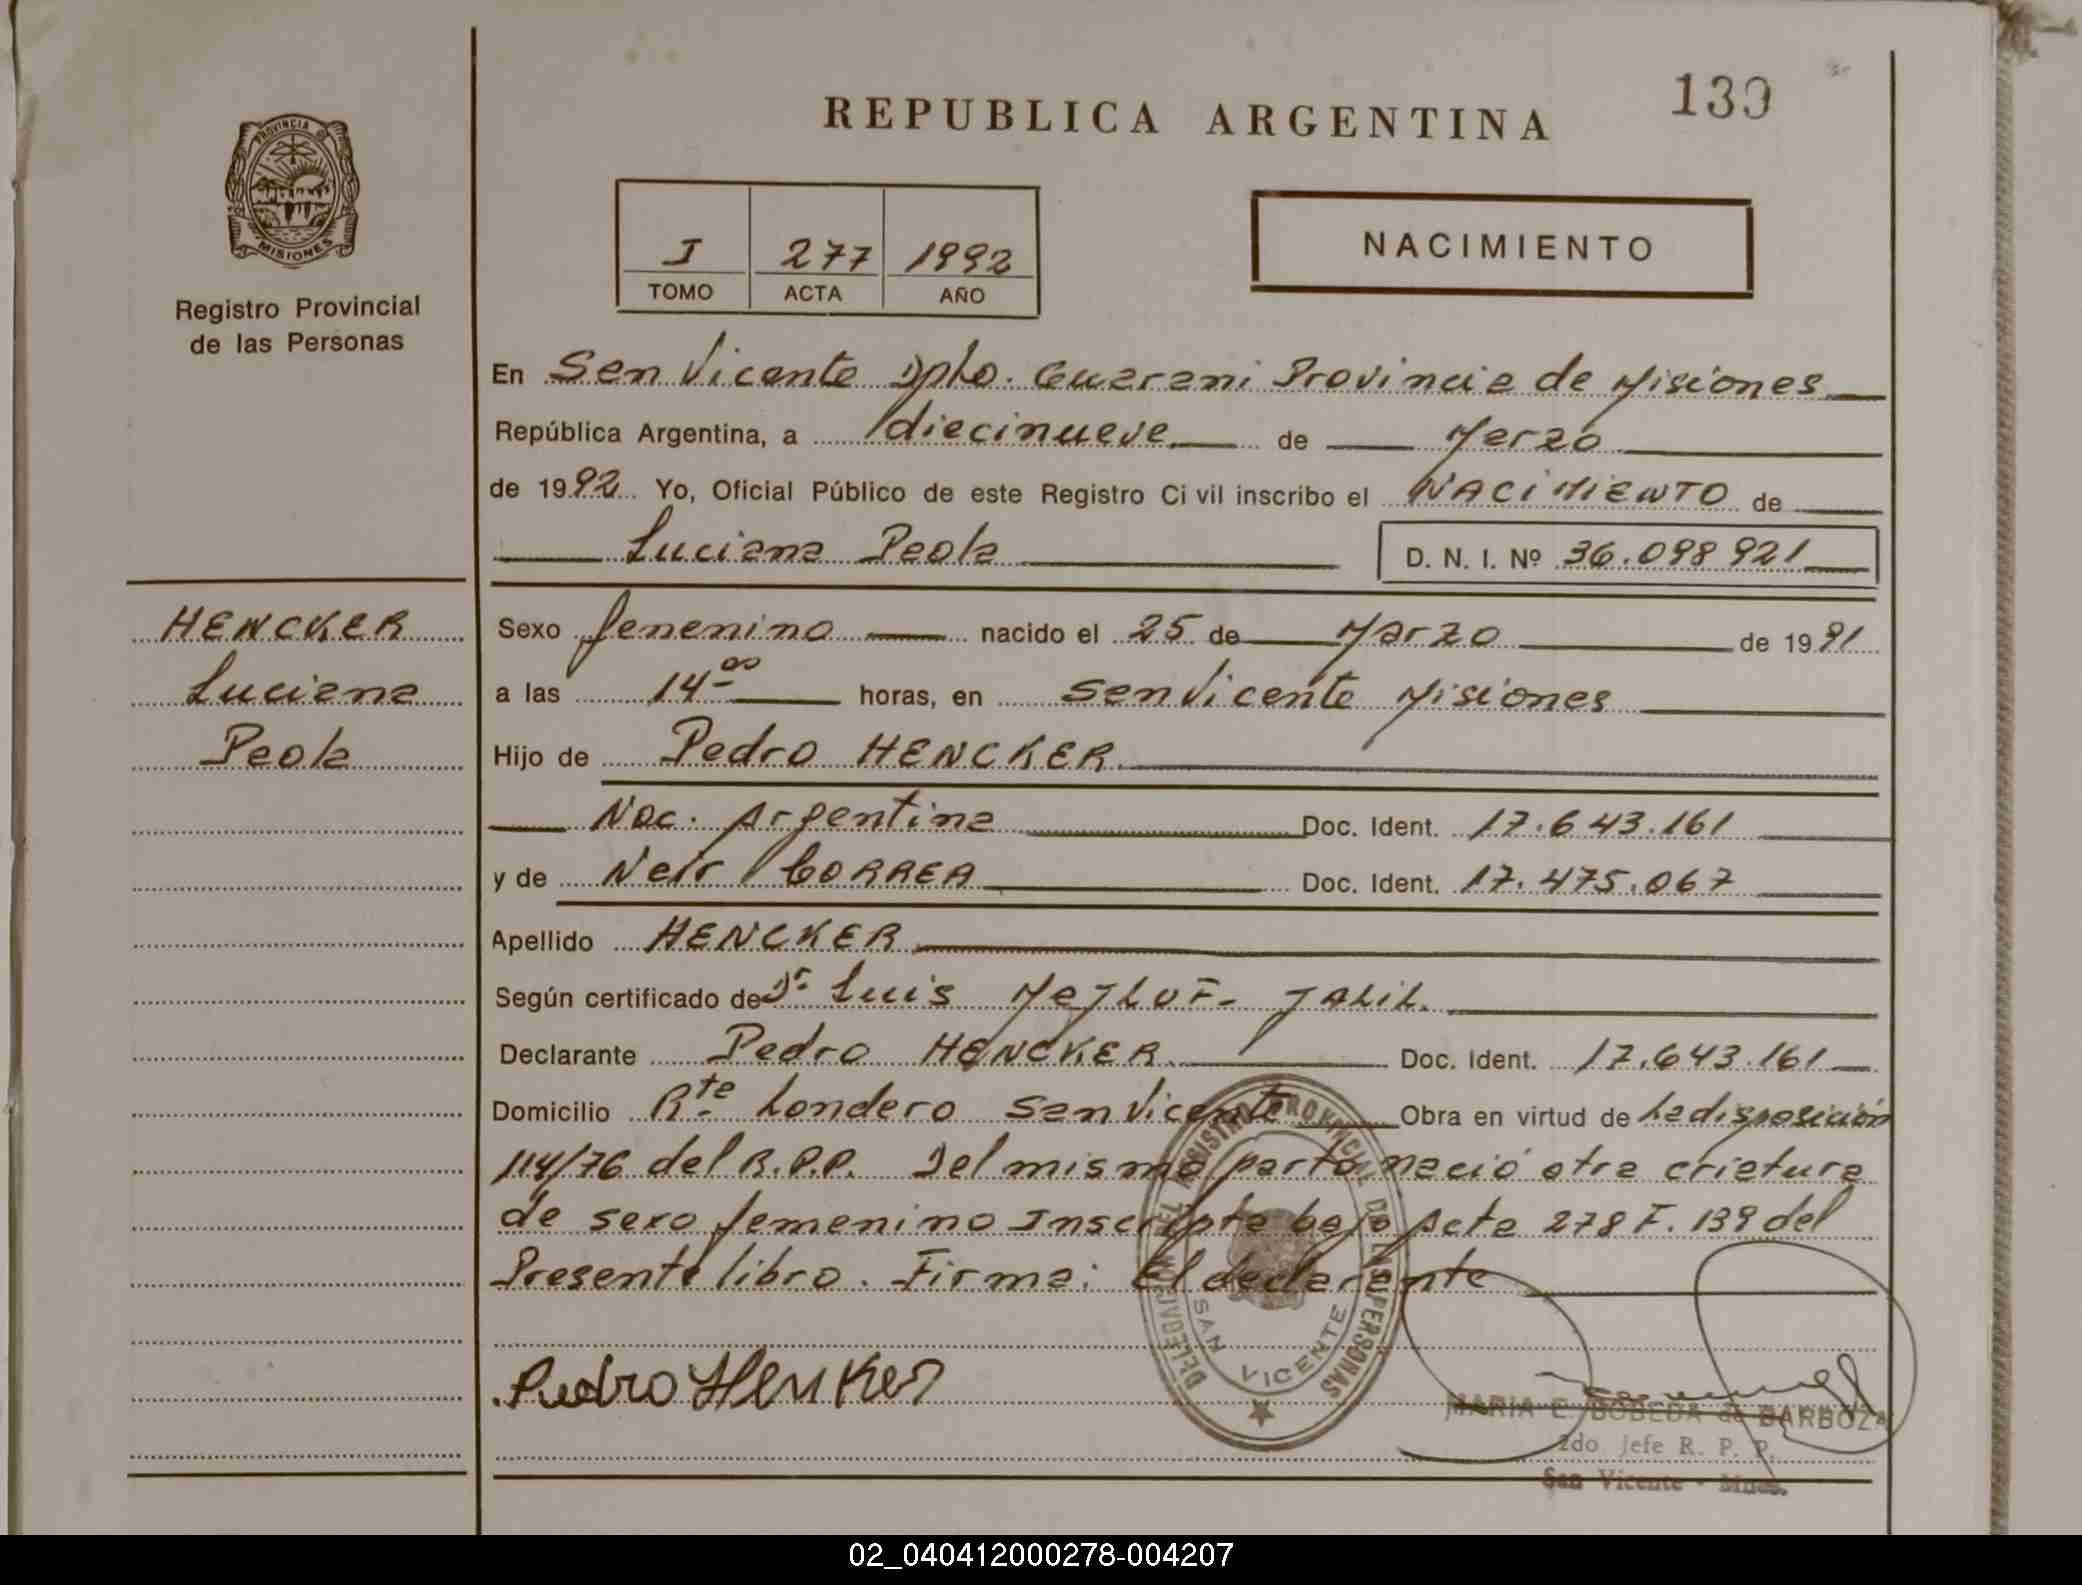 139
REPUBLICA ARGENTINA
PROVINCIA DE
MISIONES
Registro Provincial
de las Personas
I 277 1992
TOMO ACTA AÑO
NACIMIENTO
En San Vicente Dpto. Guarani Provincia de Misiones
República Argentina, a diecinueve de Marzo
de 1992 Yo, Oficial Público de este Registro Civil inscribo el NACIMIENTO de
Luciana Paola D. N. I. Nº 36.098 921
HENCKER
Luciana
Paola
Sexo femenino nacido el 25 de Marzo de 1991
a las 14 00 horas, en San Vicente Misiones
Hijo de Pedro HENCKER
Nac. Argentina Doc. Ident. 17.643.161
y de Neir CORREA Doc. Ident. 17.475.067
Apellido HENCKER
Según certificado de Dr Luis JALIL.
Declarante Pedro HENCKER Doc. Ident. 17.643.161
Domicilio Rte Londero San Vicente Obra en virtud de La disposición
114/76 del R.P.P. Del mismo parto nació otra criatura
de sexo femenino Inscripta bajo Acta 278 F. 139 del
Presente libro. Firma: El declarante
Pedro Henker
DELEGACION DEL REGISTRO PROVINCIAL DE LAS PERSONAS
SAN VICENTE
MARIA E. BOBEDA de BARBOZA
2do Jefe R. P. P.
San Vicente - Mnes.
02_040412000278-004207